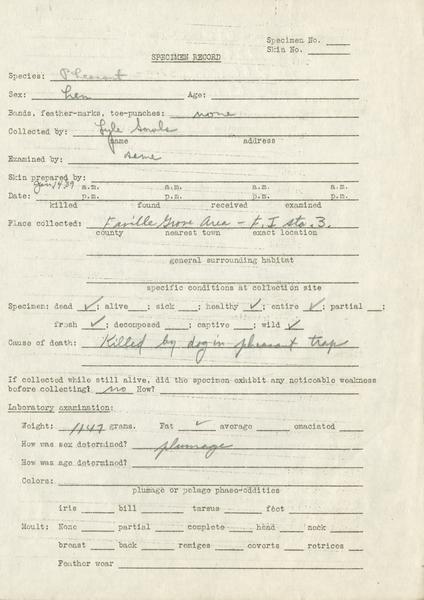 Specimen No. ____
Skin No. ____
SPECIMEN RECORD
Species: Pheasant
Sex: hen Age:
Bands, feather-marks, toe-punches: none
Collected by: Lyle Sowls
name address
Examined by: same
Skin prepared by:
Jan 14 39 a.m. a.m. a.m. a.m.
Date: p.m. p.m. p.m. p.m.
killed found received examined
Place collected: Faville Grove Area - F. I sta. 3.
county nearest town exact location
general surrounding habitat
specific conditions at collection site
Specimen: dead ✓; alive ; sick ; healthy ✓; entire ✓; partial ;
fresh ✓; decomposed ; captive ; wild ✓
Cause of death: Killed by dog in pheasant trap
If collected while still alive, did the specimen exhibit any noticeable weakness
before collecting? no How?
Laboratory examination:
Weight: 1147 grams. Fat ✓ average emaciated
How was sex determined? plumage
How was age determined?
Colors:
plumage or pelage phase-oddities
iris bill tarsus feet
Moult: None partial complete head neck
breast back remiges coverts retrices
Feather wear